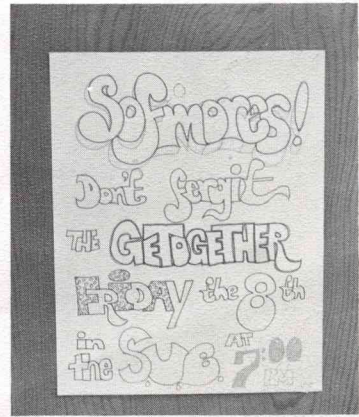 Sof'mores!
Don't fergit
THE GETOGETHER
FRIDAY the 8th
in the S.U.B. AT 7:00 P.M.